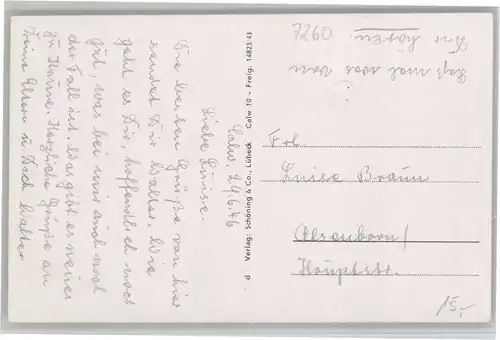 Calw, 29.6.46
Liebe Luise.
Die besten Grüße von hier
sendet Dir Walter. Wie
geht es Dir, hoffendlich noch
gut, was bei mir auch noch
der Fall ist. Was gibt es neues
zu Hause. Herzliche Grüße an
Deine Eltern u. Dich Walter
d Verlag: Schöning & Co., Lübeck Calw 10 - Freig. 14823 43
7260
Laß mal was von
Dir hören.
Frl.
Luise Braun
Alsenborn/
Hauptstr.
15,-